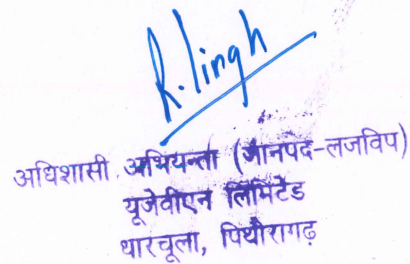 R. Singh
अधिशासी अभियन्ता (जानपद-लजविप)
यूजेवीएन लिमिटेड
धारचूला, पिथौरागढ़